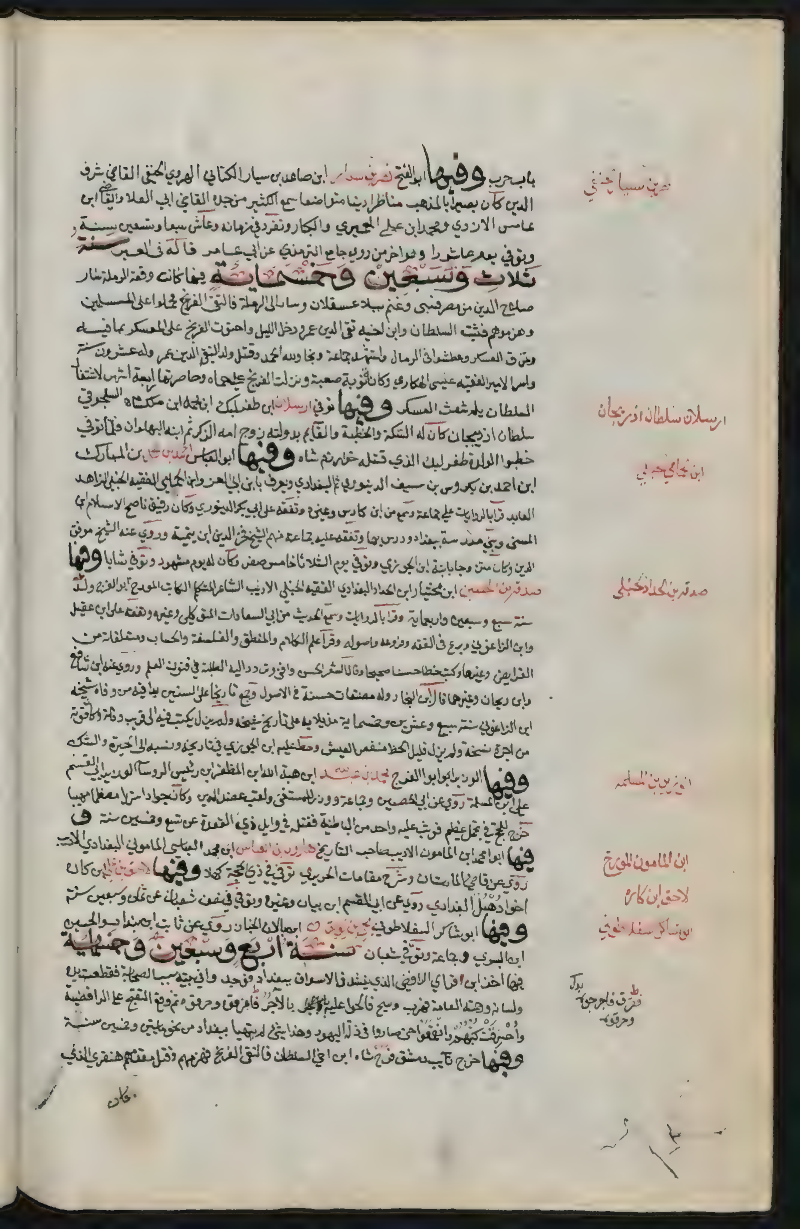 باب حرب وفيها ابو الفتح نصر بن سيار ابن صاعد بن سيار الكتاني الهروي الحنفي القاضي شرف
الدين كان بصيرا بالمذهب مناظرا دينا متواضعا سمع الكثير من جده القاضي ابي العلا والقاضي ابي
عامر الازدي ومحمد ابن علي العميري والكبار وتفرد في زمانه وعاش سبعا وتسعين سنة
وتوفي يوم عاشورا وهو اخر من روى جامع الترمذي عن ابي عامر قاله في العبر سنة
ثلاث وسبعين وخمسماية فيها كانت وقعة الرملة سار
صلاح الدين من مصر فسبى وغنم ببلاد عسقلان وسار الى الرملة فالتقى الفرنج فحملوا على المسلمين
وهزموهم فثبت السلطان وابن اخيه تقي الدين عمر ودخل الليل واحتوت الفرنج على العسكر بما فيه
وتمزق العسكر وعطشوا في الرمال واستشهد جماعة ونجا ولله الحمد وقتل ولد لتقي الدين عمر وله عشرون سنة
واسر الامير الفقيه عيسى الهكاري وكانت نوبة صعبة ونزلت الفرنج على حماه وحاصرتها اربعة اشهر لاشتغال
السلطان بلم شعث العسكر وفيها توفي ارسلان ابن طغرلبك ابن محمد ابن ملكشاه السلجوقي
سلطان اذربيجان كان له السكة والخطبة والقايم بدولته زوج امه الدكز ثم ابنه البهلوان فلما توفي
خطبوا لولده طغرلبك الذي قتله خوارزم شاه وفيها ابو العباس احمد بن محمد بن المبارك
ابن احمد بن بكروس بن سيف الدينوري ثم البغدادي ويعرف بابن الحمامي الفقيه الحنبلي الزاهد
العابد قرا بالروايات على جماعة وسمع من ابن كادس وغيره وتفقه على ابي بكر الدينوري وكان رفيق ناصح الاسلام ابن
المنى وبنى مدرسة ببغداد ودرس بها وتفقه عليه جماعة منهم الشيخ فخر الدين ابن تيمية وروى عنه الشيخ موفق
الدين وكان متزوجا بابنة ابن الجوزي وتوفي يوم الثلاثا خامس صفر وكان له يوم مشهود وتوفي شابا وفيها
صدقة بن الحسين ابن بختيار ابن الحداد البغدادي الفقيه الحنبلي الاديب الشاعر المتكلم الكاتب المورخ ابو الفرج ولد
سنة سبع وسبعين واربعماية وقرا بالروايات وسمع الحديث من ابي السعادات المتوكلي وغيره وتفقه على ابن عقيل
وابن الزاغوني وبرع في الفقه وفروعه واصوله وقرا علم الكلام والمنطق والفلسفة والحساب ومتعلقاته من
الفرايض وغيرها وكتب خطا حسنا صحيحا وقال الشعر الحسن وافتى وتردد اليه الطلبة في فنون العلم وروى عنه ابن شافع
وابن ريحان وغيرهما قال ابن النجار وله مصنفات حسنة في الاصول وجمع تاريخا على السنين بدا فيه من وفاة شيخه
ابن الزاغوني سنة سبع وعشرين وخمسماية مذيلا به على تاريخ شيخه ولم يزل يكتب فيه الى قريب وفاته وكان قوته
من اجرة نسخه ولم يزل قليل الحظ منغص العيش وحط عليه ابن الجوزي في تاريخه ونسبه الى الحيرة والشك
وفيها الوزير ابو الفرج محمد بن عبد الله ابن هبة الله ابن المظفر ابن رئيس الروسا الوزير ابي القسم
على ابن المسلمة روى عن ابن الحصين وجماعة ووزر للمستضي ولقب عضد الدين وكان جوادا سريا معظما مهيبا
خرج للحج في تجمل عظيم فوثب عليه واحد من الباطنية فقتله في اوايل ذي القعدة عن تسع وخمسين سنة و
فيها ابو محمد ابن المامون الاديب صاحب التاريخ هارون بن العباس ابن محمد العباسي الماموني البغدادي الاديب
روى عن قاضي المارستان وشرح مقامات الحريري توفي في ذي الحجة كهلا وفيها لاحق بن علي ابن كاره
اخو دهبل البغدادي روى عن ابي القسم ابن بيان وغيره وتوفي في نصف شعبان عن ثمان وسبعين سنة
وفيها ابو شاكر السقلاطوني يحيى بن يوسف ابن بالان الخباز روى عن ثابت ابن بندار والحسين
ابن البسري وجماعة وتوفي في شعبان سنة اربع وسبعين وخمسماية
فيها اخذ ابن قراي الرافضي الذي ينشد في الاسواق ببغداد فوجد وافي بيته سب الصحابة فقطعت يده
ولسانه ورجمته العامة فهرب وسبح فالحوا عليه بالاجر فغرق وحرقوه ثم وقع التتبع على الرافضة
واحرقت كتبهم وانقمعوا حتى صاروا في ذلة اليهود وهذا شي لم يتهيا ببغداد من نحو مايتين وخمسين سنة
وفيها خرج نايب دمشق فرخ شاه ابن اخي السلطان فالتقى الفرنج فهزمهم وقتل مقدمهم هنفري الذي
كان
نصر بن سيار حنفي
ارسلان سلطان اذربيجان
ابن الحمامي حنبلي
صدقة بن الحداد حنبلي
الوزير بن المسلمه
ابن المامون المورخ
لاحق ابن كاره
ابو شاكر سقلاطوني
فغرق فاخرجوه
وحرقوه